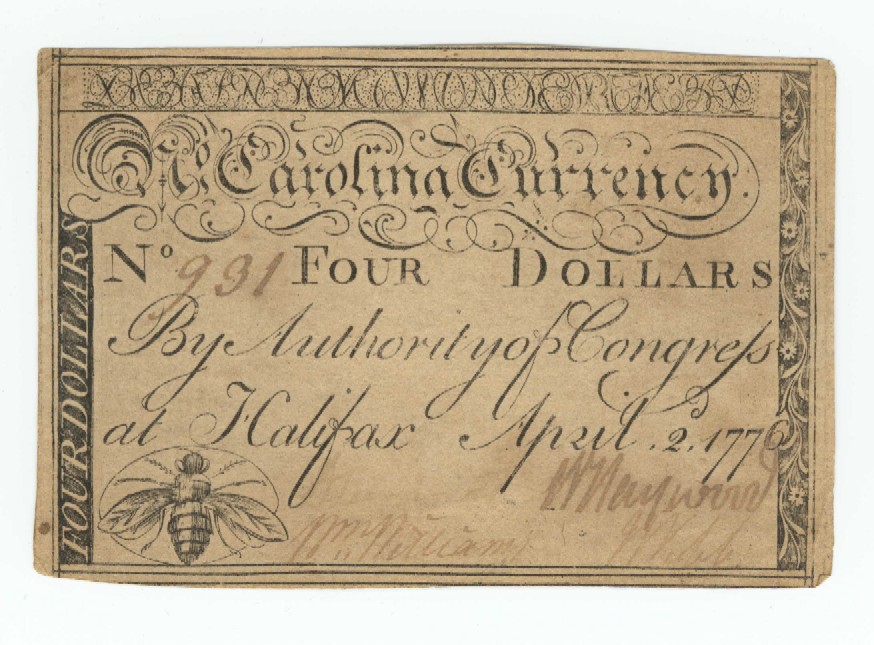 No. Carolina Currency.
No 931 FOUR DOLLARS
By Authority of Congreſs
at Halifax April .2.d 1776
FOUR DOLLARS
W Haywood
Wm Williams